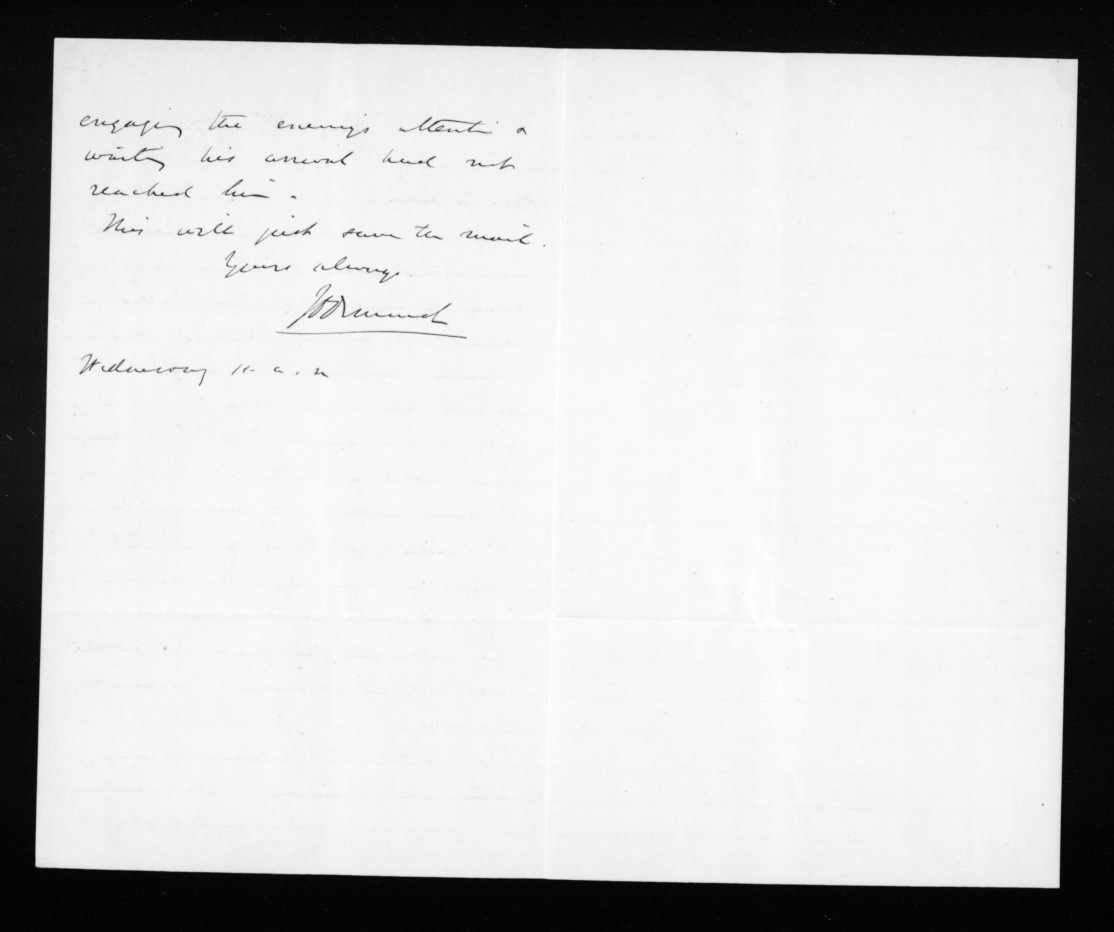 engaging the enemy's attention &
waiting his arrival had not
reached him.
This will just save the mail.
Yours always.
JD Ormond
Wednesday 11. a. m